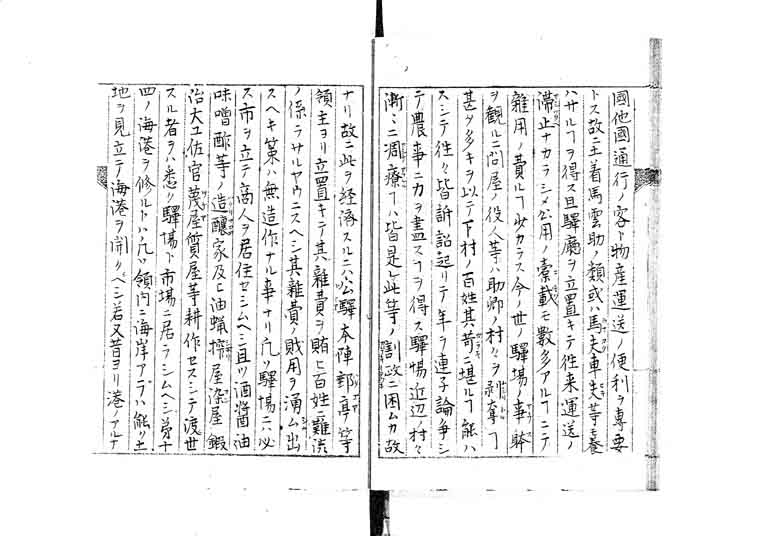 國他國通行ノ客ト物産運送ノ便利ヲ專要
トス故ニ土着馬雲助ノ類或ハ馬夫車夫等ヲ養
ハサルヿヲ得ス且驛廳ヲ立置キテ往来運送ノ
滞止ナカラシメ公用ノ橐載モ數多アルヿニテ
雜用ノ費ルヿ少カラス今ノ世ノ驛場ノ事躰
ヲ觀ルニ問屋ノ役人等ハ助郷ノ村々ヲ剥奪ヿ
甚タ多キヲ以テ下村ノ百姓其苛ニ堪ルヿ能ハ
スシテ往々皆訴訟起リテ年ヲ連子論争シ
テ農事ニカヲ盡スヿヲ得ス驛場近辺ノ村々
漸々ニ凋瘵ヿハ皆是レ此等ノ割政ニ困ムカ故
ナリ故ニ此ヲ経済スルニハ公驛本陣郵亭等
領主ヨリ立置キテ其雜費ヲ賄ヒ百姓ニ難渋
ノ係ラサルヤウニスヘシ其雜費ノ賎用ヲ湧ム出
スヘキ策ハ無造作ナル事ナリ凡ソ驛場ニハ必
ス市ヲ立テ商人ヲ居住セシムヘシ且ツ酒醤油
味噌酢等ノ造釀家及ヒ油蝋搾屋染屋鍛
治大工佐官萬屋質屋等耕作セスシテ渡世
スル者ヲハ悉ク驛場ト市場ニ居ラシムヘシ第十
四ノ海港ヲ修ルトハ凡ソ領内ニ海岸アラハ能ク土
地ヲ見立テ海港ヲ開クベシ若又昔ヨリ港ノアルテ